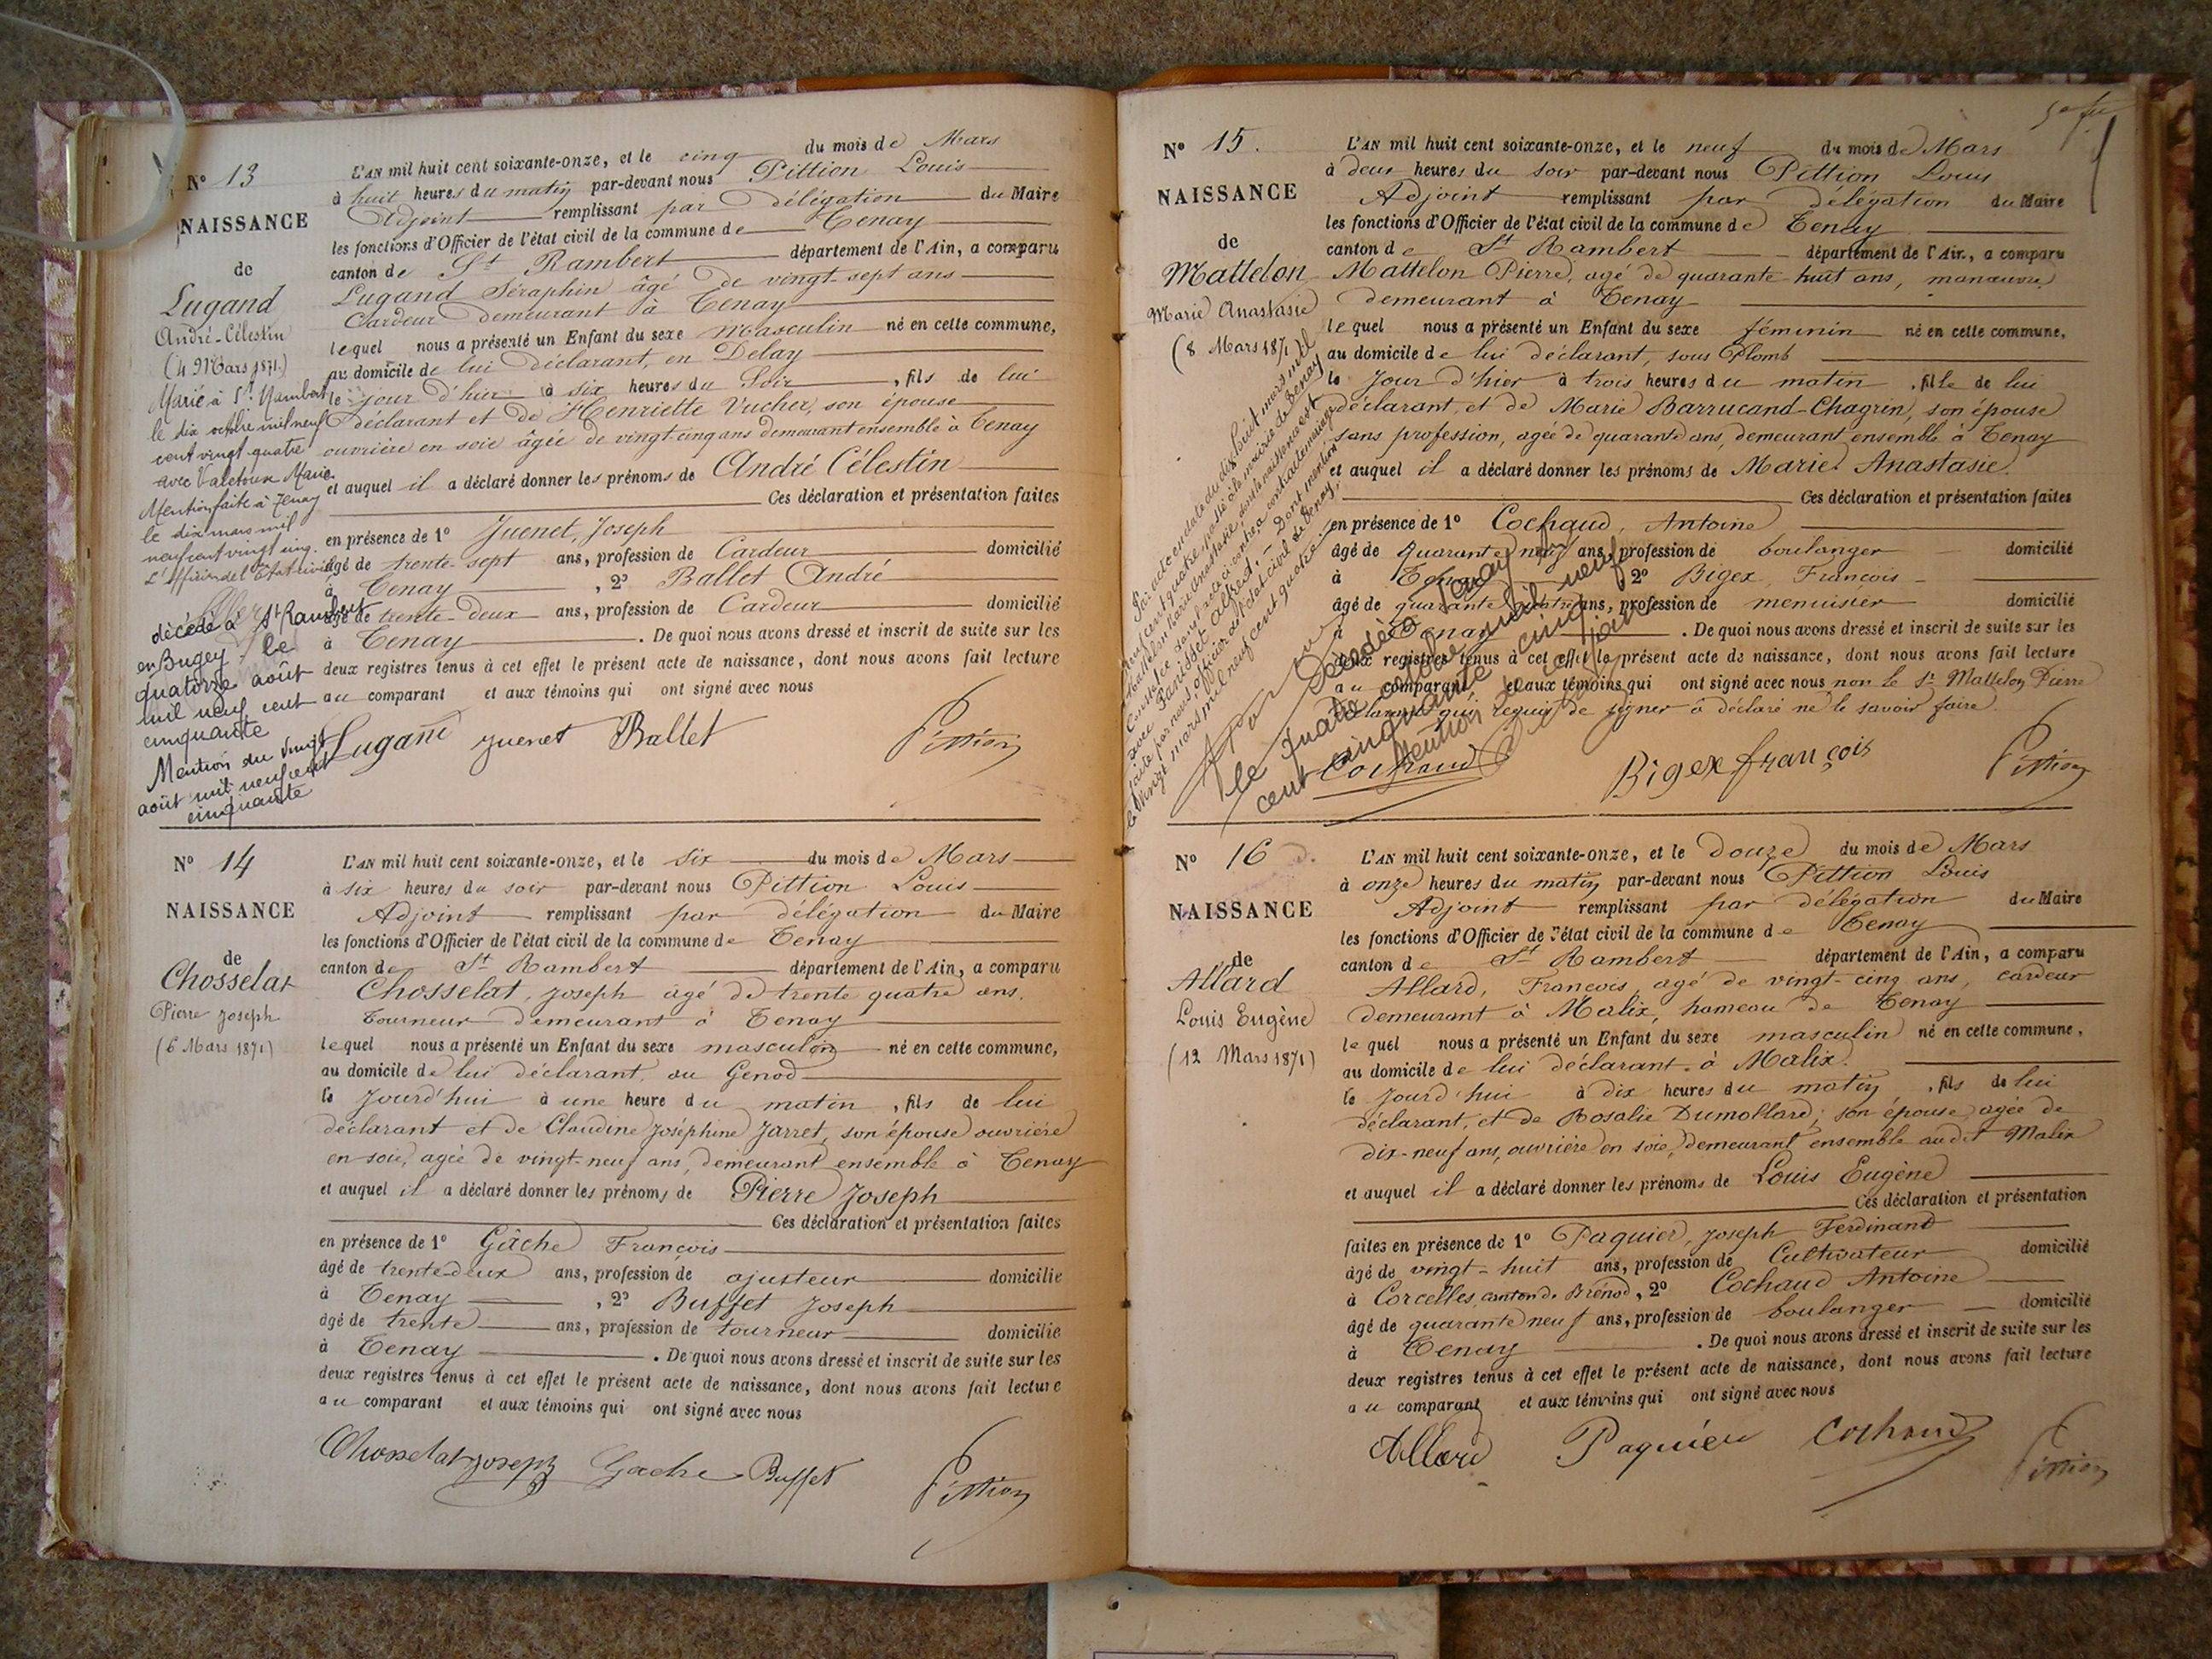 N° 13
NAISSANCE
de
Lugand
André-Célestin
(4 Mars 1871.)
Marié à St Rambert
le dix octobre mil neuf
cent vingt quatre
avec Marie
Mention faite à Tenay
le dix mars mil
neuf cent vingt cinq.
L'Officier de l'Etat-civil
décédé à St Rambert
en Bugey le
quatorze août
mil neuf cent
cinquante
Mention du vingt
août mil neuf cent
cinquante
L'AN mil huit cent soixante-onze, et le cinq du mois de Mars
à huit heures du matin par-devant nous Pittion Louis
Adjoint remplissant par délégation du Maire
les fonctions d'Officier de l'état civil de la commune de Tenay
canton de St Rambert département de l'Ain, a comparu
Lugand Séraphin âgé de vingt-sept ans
Cardeur demeurant à Tenay
lequel nous a présenté un Enfant du sexe Masculin né en cette commune,
au domicile de lui déclarant, en Delay
le jour d'hier à six heures du Soir, fils de lui
déclarant et de Henriette Vucher, son épouse
ouvrière en soie âgée de vingt-cinq ans demeurant ensemble à Tenay
et auquel il a déclaré donner les prénoms de André Célestin
Ces déclaration et présentation faites
en présence de 1° Juenet, Joseph
âgé de trente-sept ans, profession de Cardeur domicilié
à Tenay, 2° Ballet André
âgé de trente-deux ans, profession de Cardeur domicilié
à Tenay. De quoi nous avons dressé et inscrit de suite sur les
deux registres tenus à cet effet le présent acte de naissance, dont nous avons fait lecture
au comparant et aux témoins qui ont signé avec nous
Lugand Juenet Ballet Pittion
N° 14
NAISSANCE
de
Chosselat
Pierre Joseph
(6 Mars 1871)
L'AN mil huit cent soixante-onze, et le six du mois de Mars
à six heures du soir par-devant nous Pittion Louis
Adjoint remplissant par délégation du Maire
les fonctions d'Officier de l'état civil de la commune de Tenay
canton de St Rambert département de l'Ain, a comparu
Chosselat, Joseph âgé de trente quatre ans,
Tourneur demeurant à Tenay
lequel nous a présenté un Enfant du sexe masculin né en cette commune,
au domicile de lui déclarant, au Genod
le Jourd'hui à une heure du matin, fils de lui
déclarant et de Claudine Joséphine Jarret, son épouse ouvrière
en soie, agée de vingt-neuf ans, demeurant ensemble à Tenay
et auquel il a déclaré donner les prénoms de Pierre Joseph
Ces déclaration et présentation faites
en présence de 1° Gâche François
âgé de trente-deux ans, profession de ajusteur domicilié
à Tenay, 2° Buffet Joseph
âgé de trente ans, profession de tourneur domicilié
à Tenay. De quoi nous avons dressé et inscrit de suite sur les
deux registres tenus à cet effet le présent acte de naissance, dont nous avons fait lecture
au comparant et aux témoins qui ont signé avec nous
Chosselat Joseph Gache Buffet Pittion
N° 15.
NAISSANCE
de
Mattelon
Marie Anastasie
(8 Mars 1871)
Par acte en date du dix huit mars mil
neuf cent quatre, passé à la mairie de Tenay
Mattelon Marie Anastasie, dont la naissance est
constatée dans l'acte ci-contre, a contracté mariage
avec Albert. Dont mention
faite par nous, officier de l'état civil de Tenay,
le vingt mars mil neuf cent quatre.
Décédée à Tenay
le quatre octobre mil neuf
cent cinquante cinq
Mention
L'AN mil huit cent soixante-onze, et le neuf du mois de Mars
à deux heures du soir par-devant nous Pittion Louis
Adjoint remplissant par délégation du Maire
les fonctions d'Officier de l'état civil de la commune de Tenay
canton de St Rambert département de l'Ain, a comparu
Mattelon Pierre, agé de quarante huit ans, manœuvre
demeurant à Tenay
lequel nous a présenté un Enfant du sexe féminin né en cette commune,
au domicile de lui déclarant, sous Plomb
le Jour d'hier à trois heures du matin, fille de lui
déclarant, et de Marie Barrucand-Chagrin, son épouse
sans profession, agée de quarante ans, demeurant ensemble à Tenay
et auquel il a déclaré donner les prénoms de Marie Anastasie
Ces déclaration et présentation faites
en présence de 1° Cochaud, Antoine
âgé de quarante neuf ans, profession de boulanger domicilié
à Tenay 2° Bigex, François
âgé de quarante quatre ans, profession de menuisier domicilié
à Tenay. De quoi nous avons dressé et inscrit de suite sur les
deux registres tenus à cet effet le présent acte de naissance, dont nous avons fait lecture
au comparant et aux témoins qui ont signé avec nous non le Sr Mattelon Pierre
déclarant qui requis de signer a déclaré ne le savoir faire
Cochaud Bigex françois Pittion
N° 16
NAISSANCE
de
Allard
Louis Eugène
(12 Mars 1871)
L'AN mil huit cent soixante-onze, et le douze du mois de Mars
à onze heures du matin par-devant nous Pittion Louis
Adjoint remplissant par délégation du Maire
les fonctions d'Officier de l'état civil de la commune de Tenay
canton de St Rambert département de l'Ain, a comparu
Allard, François, agé de vingt-cinq ans, cardeur
demeurant à Malix, hameau de Tenay
lequel nous a présenté un Enfant du sexe masculin né en cette commune,
au domicile de lui déclarant à Malix.
le Jourd'hui à dix heures du matin, fils de lui
déclarant, et de Rosalie Dumollard, son épouse agée de
dix-neuf ans, ouvrière en soie, demeurant ensemble audit Malix
et auquel il a déclaré donner les prénoms de Louis Eugène
Ces déclaration et présentation
faites en présence de 1° Paquier, Joseph Ferdinand
âgé de vingt-huit ans, profession de Cultivateur domicilié
à Corcelles, canton de Brénod, 2° Cochaud Antoine
âgé de quarante neuf ans, profession de boulanger domicilié
à Tenay. De quoi nous avons dressé et inscrit de suite sur les
deux registres tenus à cet effet le présent acte de naissance, dont nous avons fait lecture
au comparant et aux témoins qui ont signé avec nous
Allard Paquier Cochaud Pittion